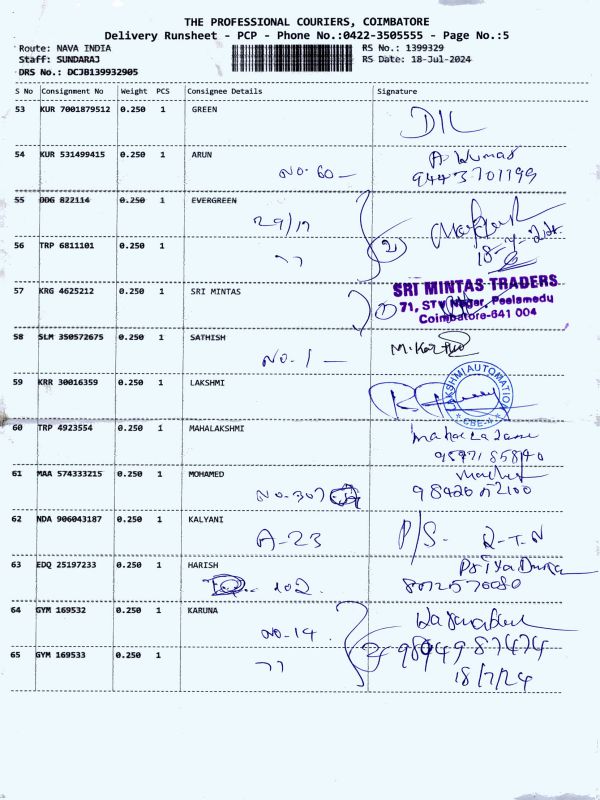 THE PROFESSIONAL COURIERS, COIMBATORE
Delivery Runsheet - PCP - Phone No.:0422-3505555 - Page No.:5
Route: NAVA INDIA RS No.: 1399329
Staff: SUNDARAJ RS Date: 18-Jul-2024
DRS No.: DCJB139932905
S No Consignment No Weight PCS Consignee Details Signature
53 KUR 7001879512 0.250 1 GREEN
DIL
54 KUR 531499415 0.250 1 ARUN A. Kumar
NO. 60 — 9443701199
55 DDG 822114 0.250 1 EVERGREEN
29/17
56 TRP 6811101 0.250 1 2 18-7-24
,,
57 KRG 4625212 0.250 1 SRI MINTAS 1 SRI MINTAS TRADERS
71, STV Nagar, Peelamedu
Coimbatore-641 004
58 SLM 350572675 0.250 1 SATHISH
NO. 1 —
59 KRR 30016359 0.250 1 LAKSHMI LAKSHMI AUTOMATION
CBE-4
60 TRP 4923554 0.250 1 MAHALAKSHMI
61 MAA 574333215 0.250 1 MOHAMED
NO-307
62 NDA 906043187 0.250 1 KALYANI P/S. R-T-N
A-23
63 EDQ 25197233 0.250 1 HARISH
102.
64 GYM 169532 0.250 1 KARUNA
NO-14
65 GYM 169533 0.250 1 2 9894987474
,, 18/7/24